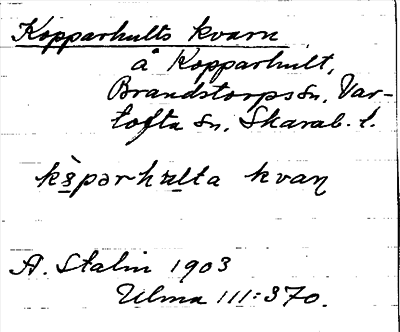 Kopparhults kvarn
å Kopparhult,
Brandstorps sn, Var-
tofta sn, Skarab. l.
kvaɳ
A. Stalin 1903
Ulma 111:370.